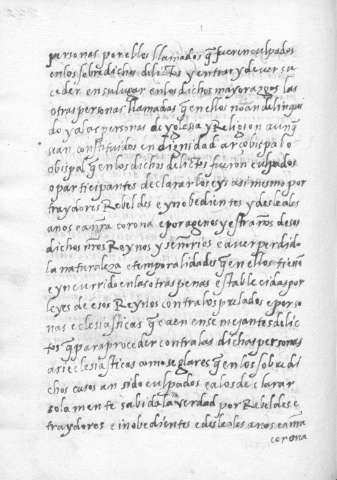 personas por ellos llamados q̃ fueren culpados
en los sobredichos delictos y entrar y dever su
ceder en su lugar en los dichos mayorazgos las
otras personas llamadas q̃ en ellos no an delinqui
do y a las personas de yglesia y Religion aunq̃
sean constituidos en dignidad arcobispal o
obispal q̃ en los dichos delictos fueron culpados
o participantes declararlos ey asimismo por
traydores Rebeldes e ynobedientes y desleales
a nos e a nr̃a corona e por agenos y estraños de sos
dichos nr̃os Reynos y señorios e aver perdido
la naturaleza e temporalidades q̃ en ellos tienẽ
e yncurrido en las otras penas establecidas por
leyes de esos Reynos contra los perlados e perso
nas eclesiasticas q̃ caen en semejantes delic
tos q̃ para proceder contra las dichas personas
asi eclesiasticas como seglares q̃ en los sobredi
chos casos an sido culpados e a los declarar
solamente sabida la verdad por Rebeldes e
traydores e inobedientes e desleales a nos e a nr̃a
corona